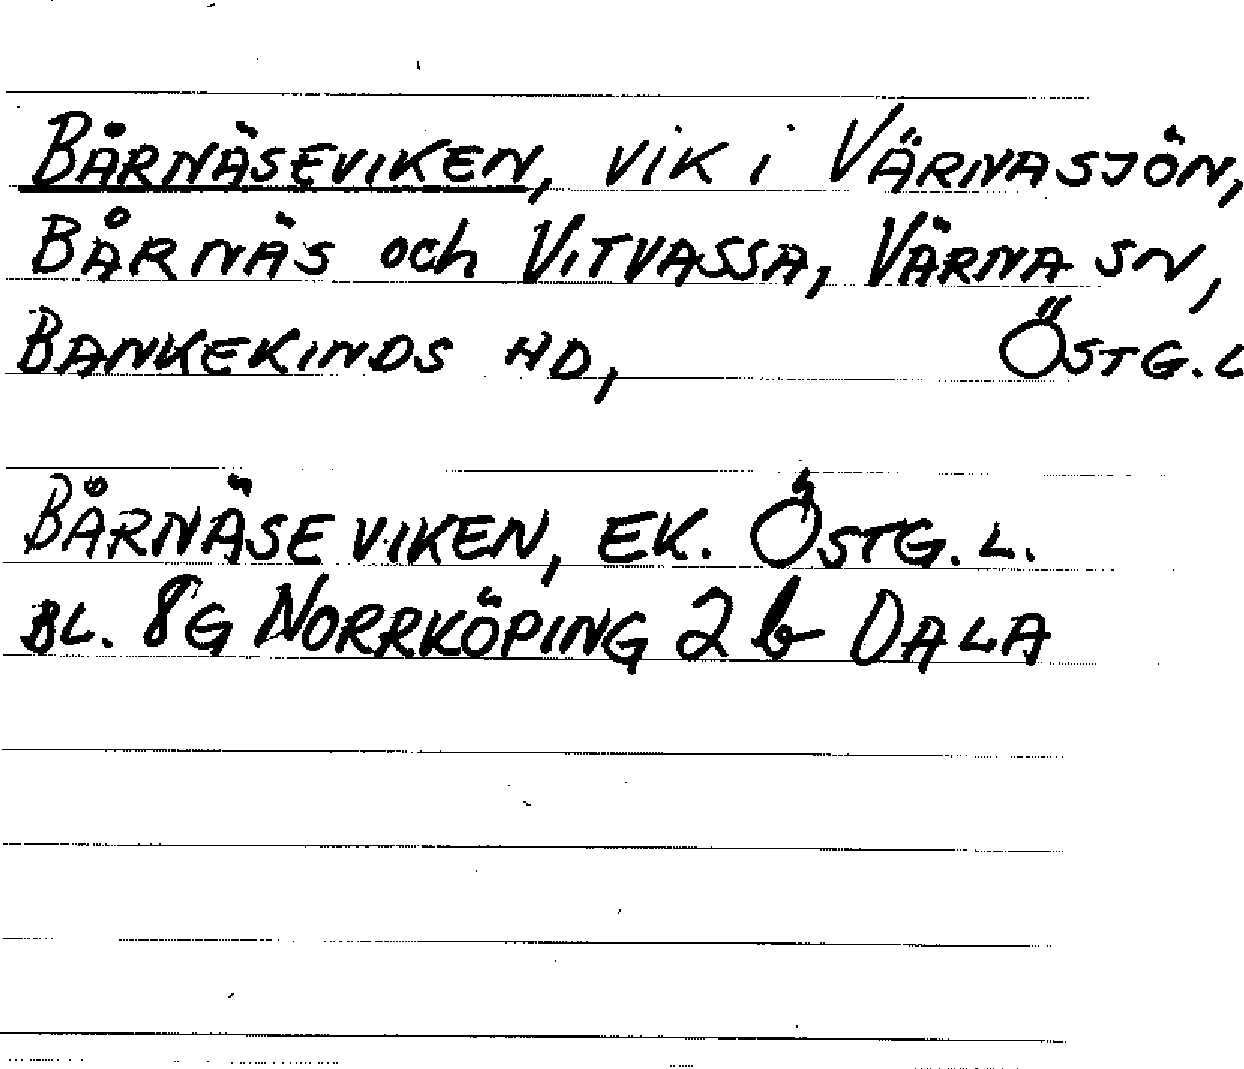 BÅRNÄSEVIKEN, VIK i VÄRNASJÖN,
BÅRNÄS och VITVASSA, VÄRNA SN,
BANKEKINDS HD, ÖSTG. L
BÅRNÄSEVIKEN, EK. ÖSTG. L.
BL. 8G NORRKÖPING 2 b DALA